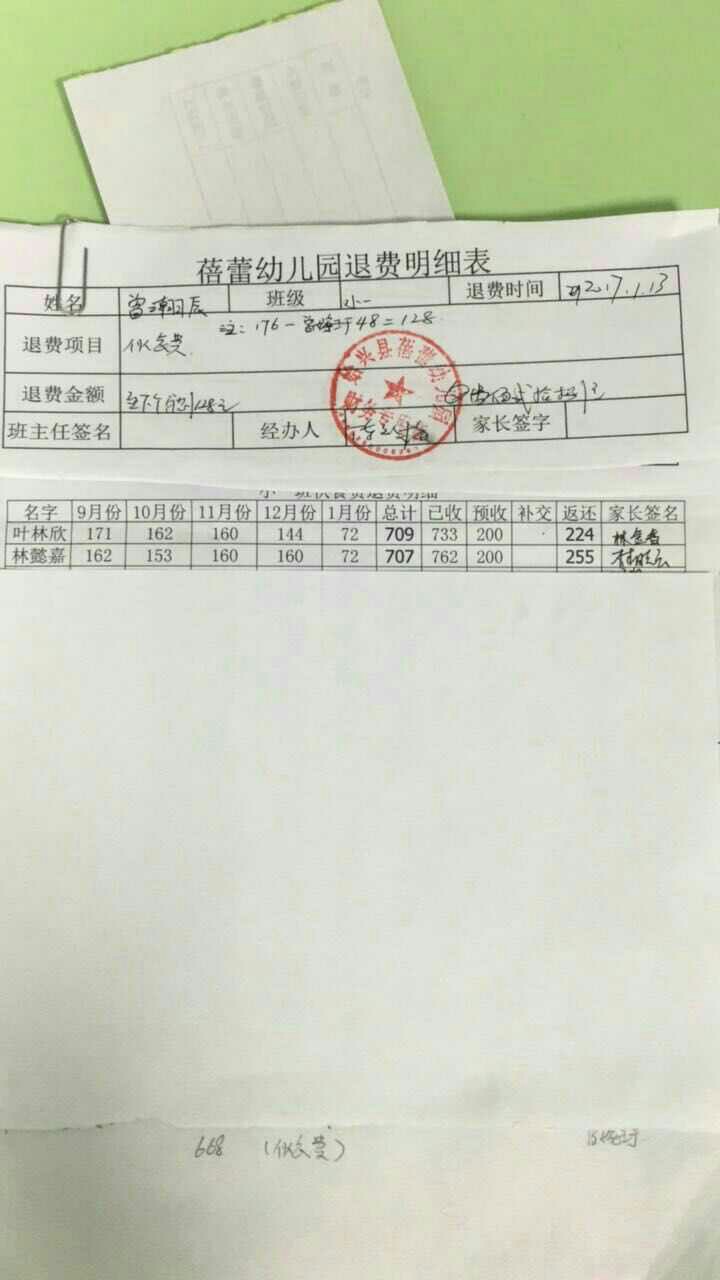 蓓蕾幼儿园退费明细表
姓名 曾瀚辰 班级 小一 退费时间 2017.1.13
注: 176 - 48 = 128
退费项目 伙食费
退费金额 128元
班主任签名 经办人 家长签字
兴县蓓蕾幼儿园
小一班伙食费退费明细
名字 9月份 10月份 11月份 12月份 1月份 总计 已收 预收 补交 返还 家长签名
叶林欣 171 162 160 144 72 709 733 200 224
林懿嘉 162 153 160 160 72 707 762 200 255
668 (伙食费)